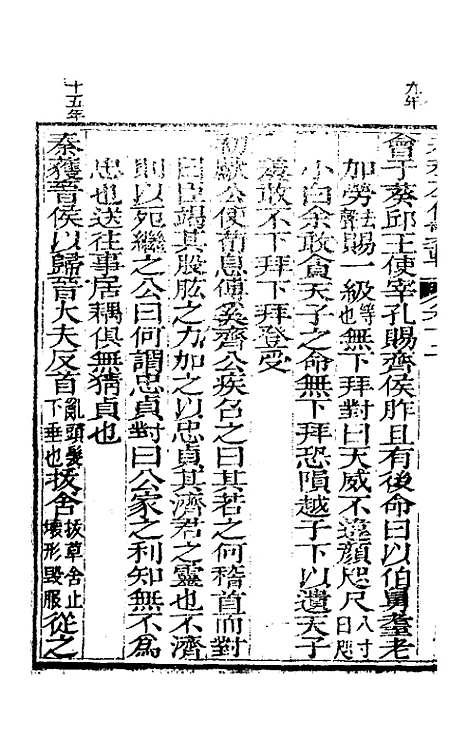 九年
會于葵邱王使宰孔賜齊侯胙且有後命曰以伯舅耋老
加勞去聲賜一級等也無下拜對曰天威不違顏咫尺八寸曰咫
小白余敢貪天子之命無下拜恐隕越于下以遺天子
羞敢不下拜下拜登受
初獻公使荀息傅奚齊公疾召之曰其若之何稽首而對
曰臣竭其股肱之力加之以忠貞其濟君之靈也不濟
則以死繼之公曰何謂忠貞對曰公家之利知無不爲
忠也送往事居耦俱無猜貞也
十五年
秦獲晉侯以歸晉大夫反首亂頭髮下垂也拔舍拔草舍止壞形毀服從之